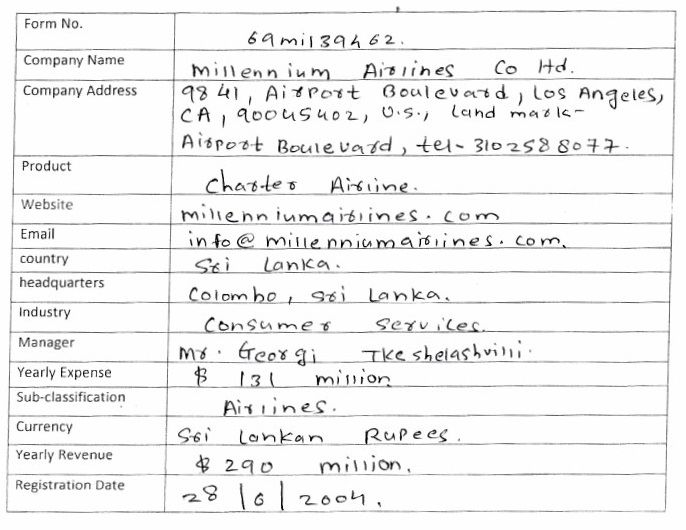 Form No.
69mil39462.
Company Name
Millennium Airlines Co ltd.
Company Address
9841, Airport Boulevard, Los Angeles,
CA, 90045402, U.S., Land mark-
Airport Boulevard, tel- 3102588077.
Product
Charter Airline.
Website
millenniumairlines.com
Email
info@millenniumairlines.com.
country
Sri Lanka.
headquarters
Colombo, Sri Lanka.
Industry
Consumer Services.
Manager
Mr. Georgi Tkeshelashvili.
Yearly Expense
$ 131 million
Sub-classification
Airlines.
Currency
Sri Lankan Rupees.
Yearly Revenue
$ 290 million.
Registration Date
28/6/2004.